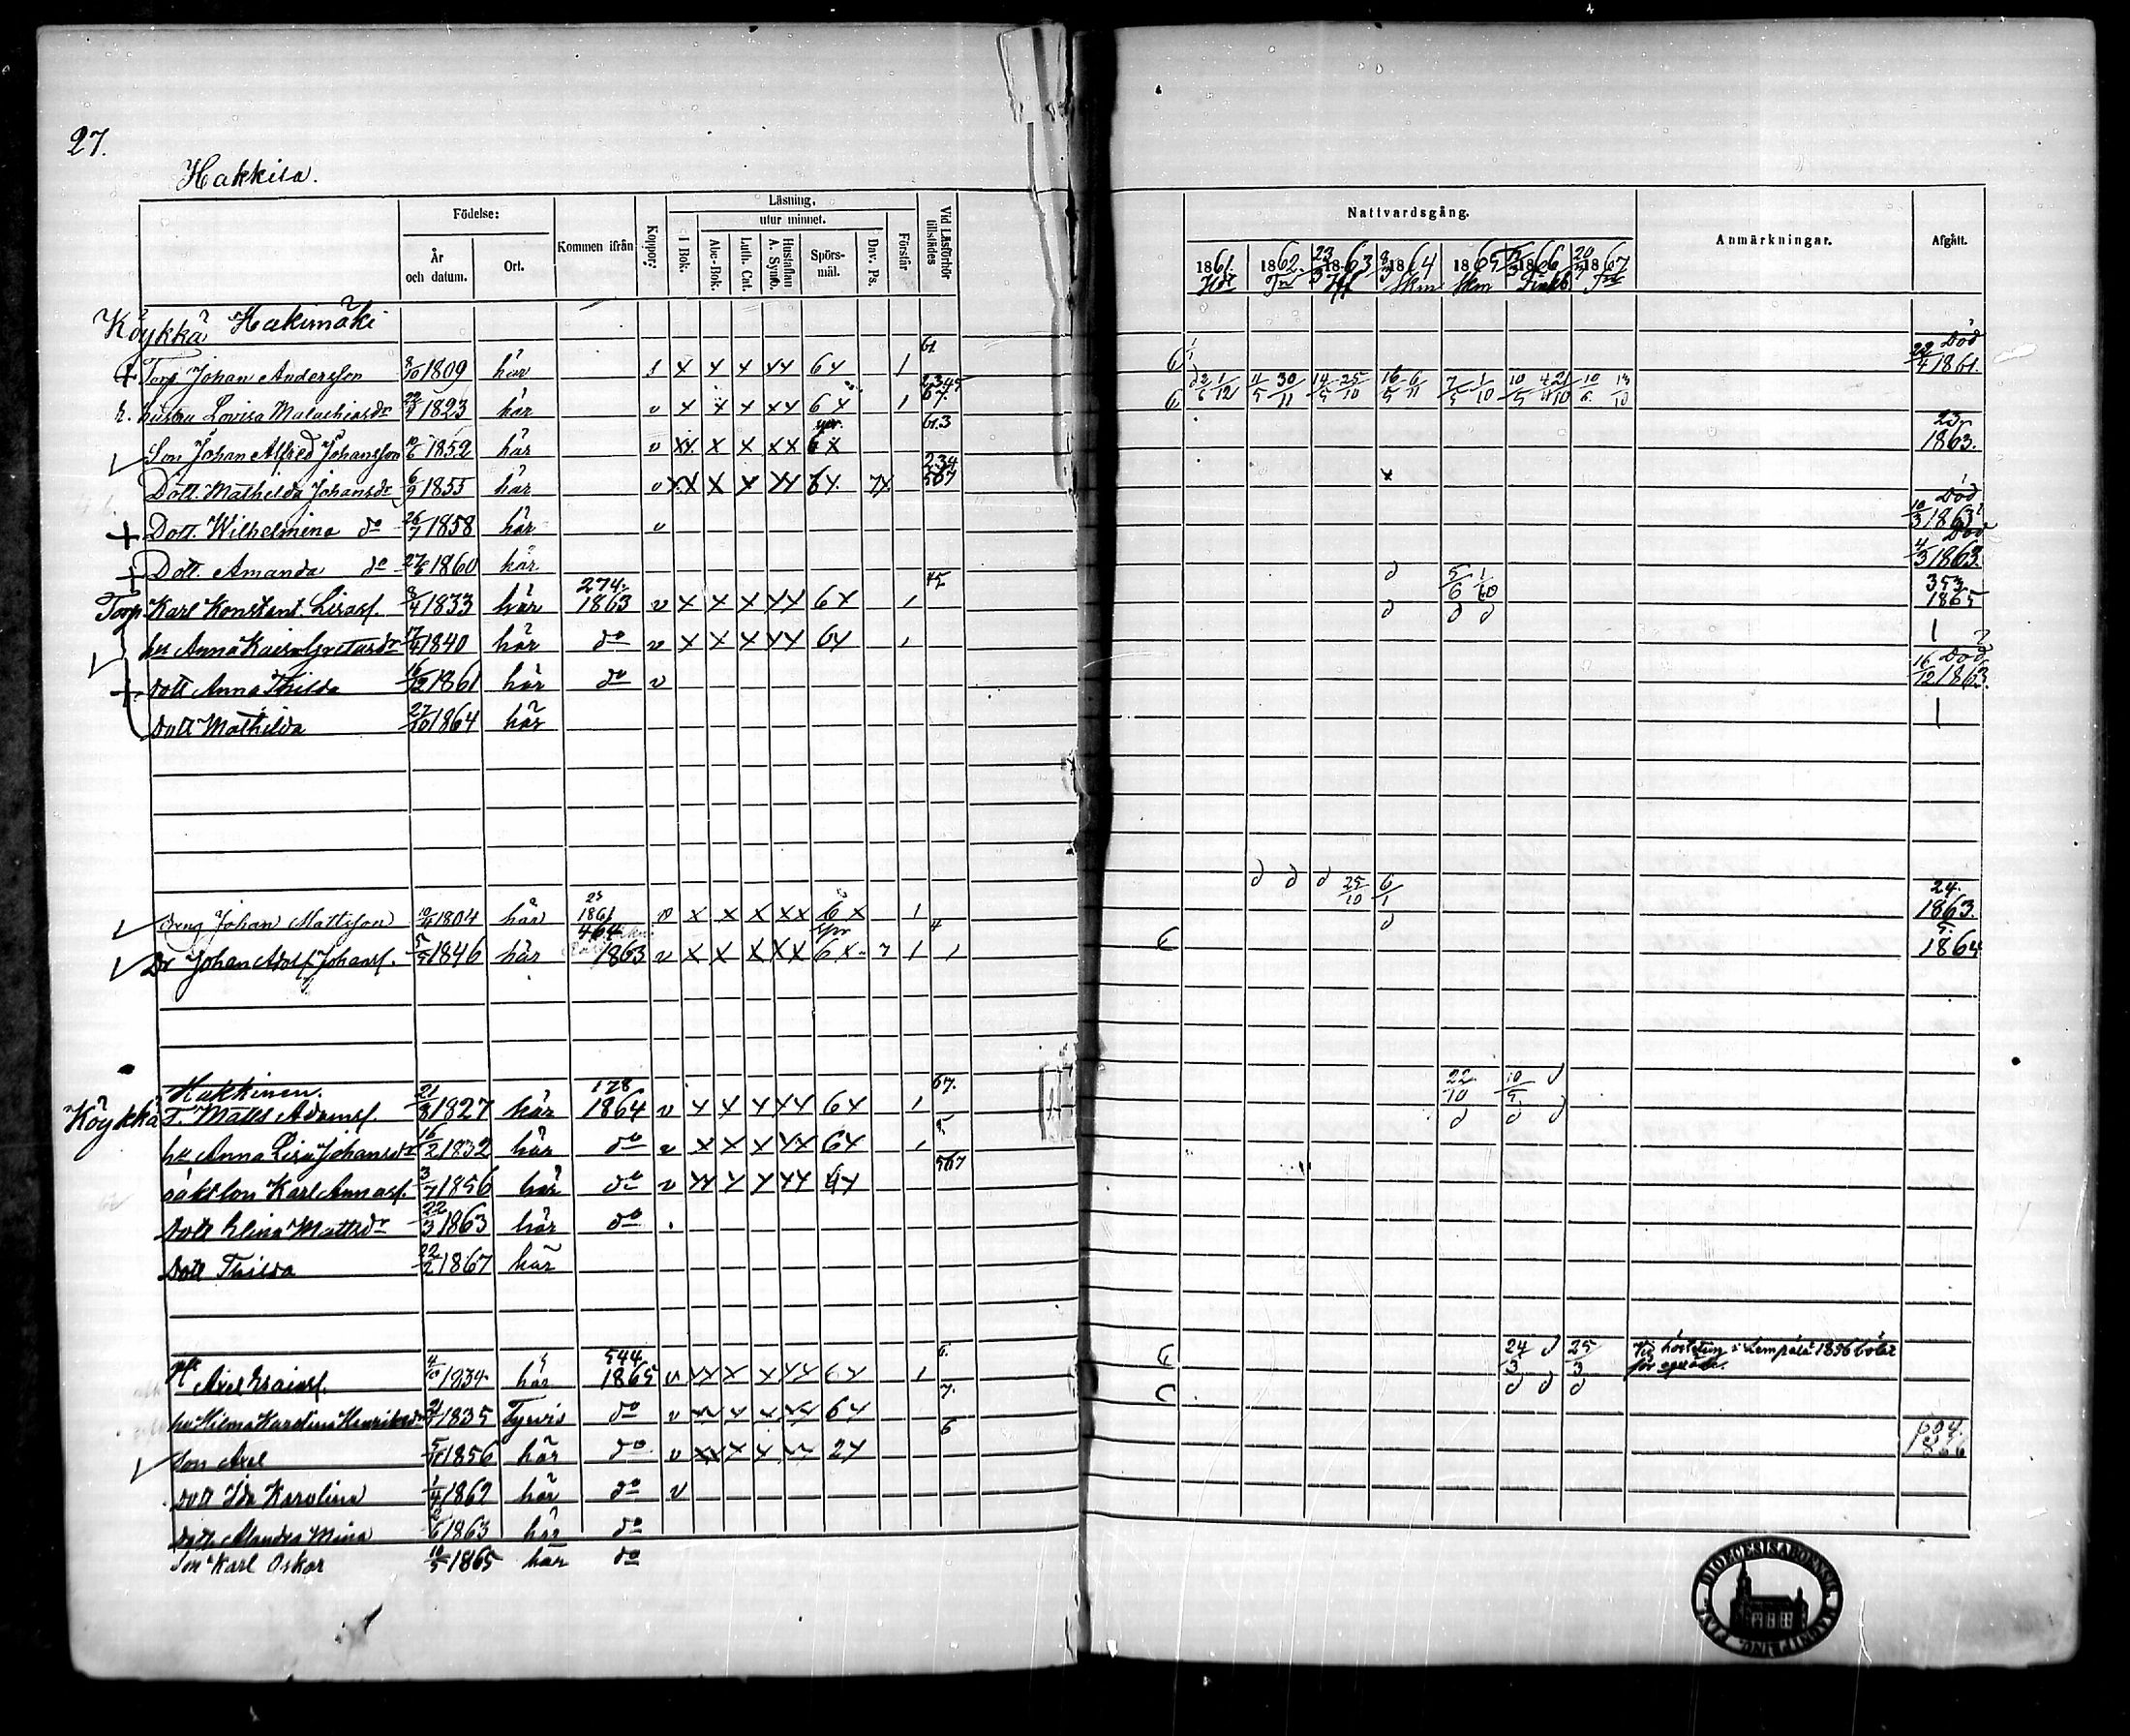 27.
Hakkila.
Födelse: Läsning. Nattvardsgång.
utur minnet.
År och datum. Ort. Kommen ifrån Koppor. I Bok. Abc-Bok. Luth. Cat. Hustaflan A. Symb. Spörs-mål. Dav. Ps. Förstår Vid Läsförhör tillstädes Anmärkningar. Afgått.
1861. 1862. 23/3 1863 8/3 1864 1865 1866 20/3 1867
Köykkä Hakimäki
61 Död
+ Torp Johan Andersson 8/10 1809 här 1 x x x xx 6x 1 22/4 1861.
h. hustru Lovisa Malachiasdr 22/7 1823 här v x x x xx 6x 1 2345 67. 11/5 30/11 14/5 25/10 16/5 6/11 10/6 13/10
61.3 23.
Son Johan Alfred Johansson 10/6 1852 här v xx x x xx 6x 1863.
234
Dott. Mathilda Johansdr 6/9 1855 här v xx x x xx 6x 7x 567 x
Död
+ Dott. Wilhelmina do 26/7 1858 här v 10/3 1863
Död
+ Dott. Amanda do 27/6 1860 här 4/3 1863.
274. 45 5/6 1/10 353
Torp Karl Konstant. Lisasf. 8/4 1833 här 1863 v x x x xx 6x 1 1865
hu Anna Kaisa Gretasdr 17/4 1840 här do v x x x xx 6x 1
Död
+ dott Anna Thilda 16/12 1861 här do v 16/12 1863.
dott Mathilda 27/10 1864 här
25 25/10 6/1 24.
Dreng Johan Mattsson 1804 här 1861 v x x x xx 6x 1 1863.
464 4 5.
Dr Johan Adolf Johansf. 5/5 1846 här 1863 v x x x xx 6x 7 1 1 1864
Hakkinen. 178 67. 22/10 10/5
Köykkä T. Matts Adamsf. 21/8 1827 här 1864 v x x x xx 6x 1
5
hu Anna Lisa Johansdr 16/2 1832 här do v x x x xx 6x 1
567
oäkt son Karl Annasf. 3/7 1856 här do v xx x x xx 4x
dott Elina Mattsdr 22/3 1863 här do
Dott Thilda 22/2 1867 här
544 6. 24/3 25/3
Axel Esaiasf. 1834 här 1865 v xx x x xx 6x 1 Vid hösteting i Lempälä 1856 böter för
7.
hu Hilma Karolina Henriksdr 1835 Tyrvis do v xx x x xx 6x
6 604.
Son Axel 1856 här do v xx x x xx 2x 1866
dott Ida Karolina 1/4 1862 här do v
dott. Alandra Mina 1863 här do
Son Karl Oskar 10/5 1865 här do